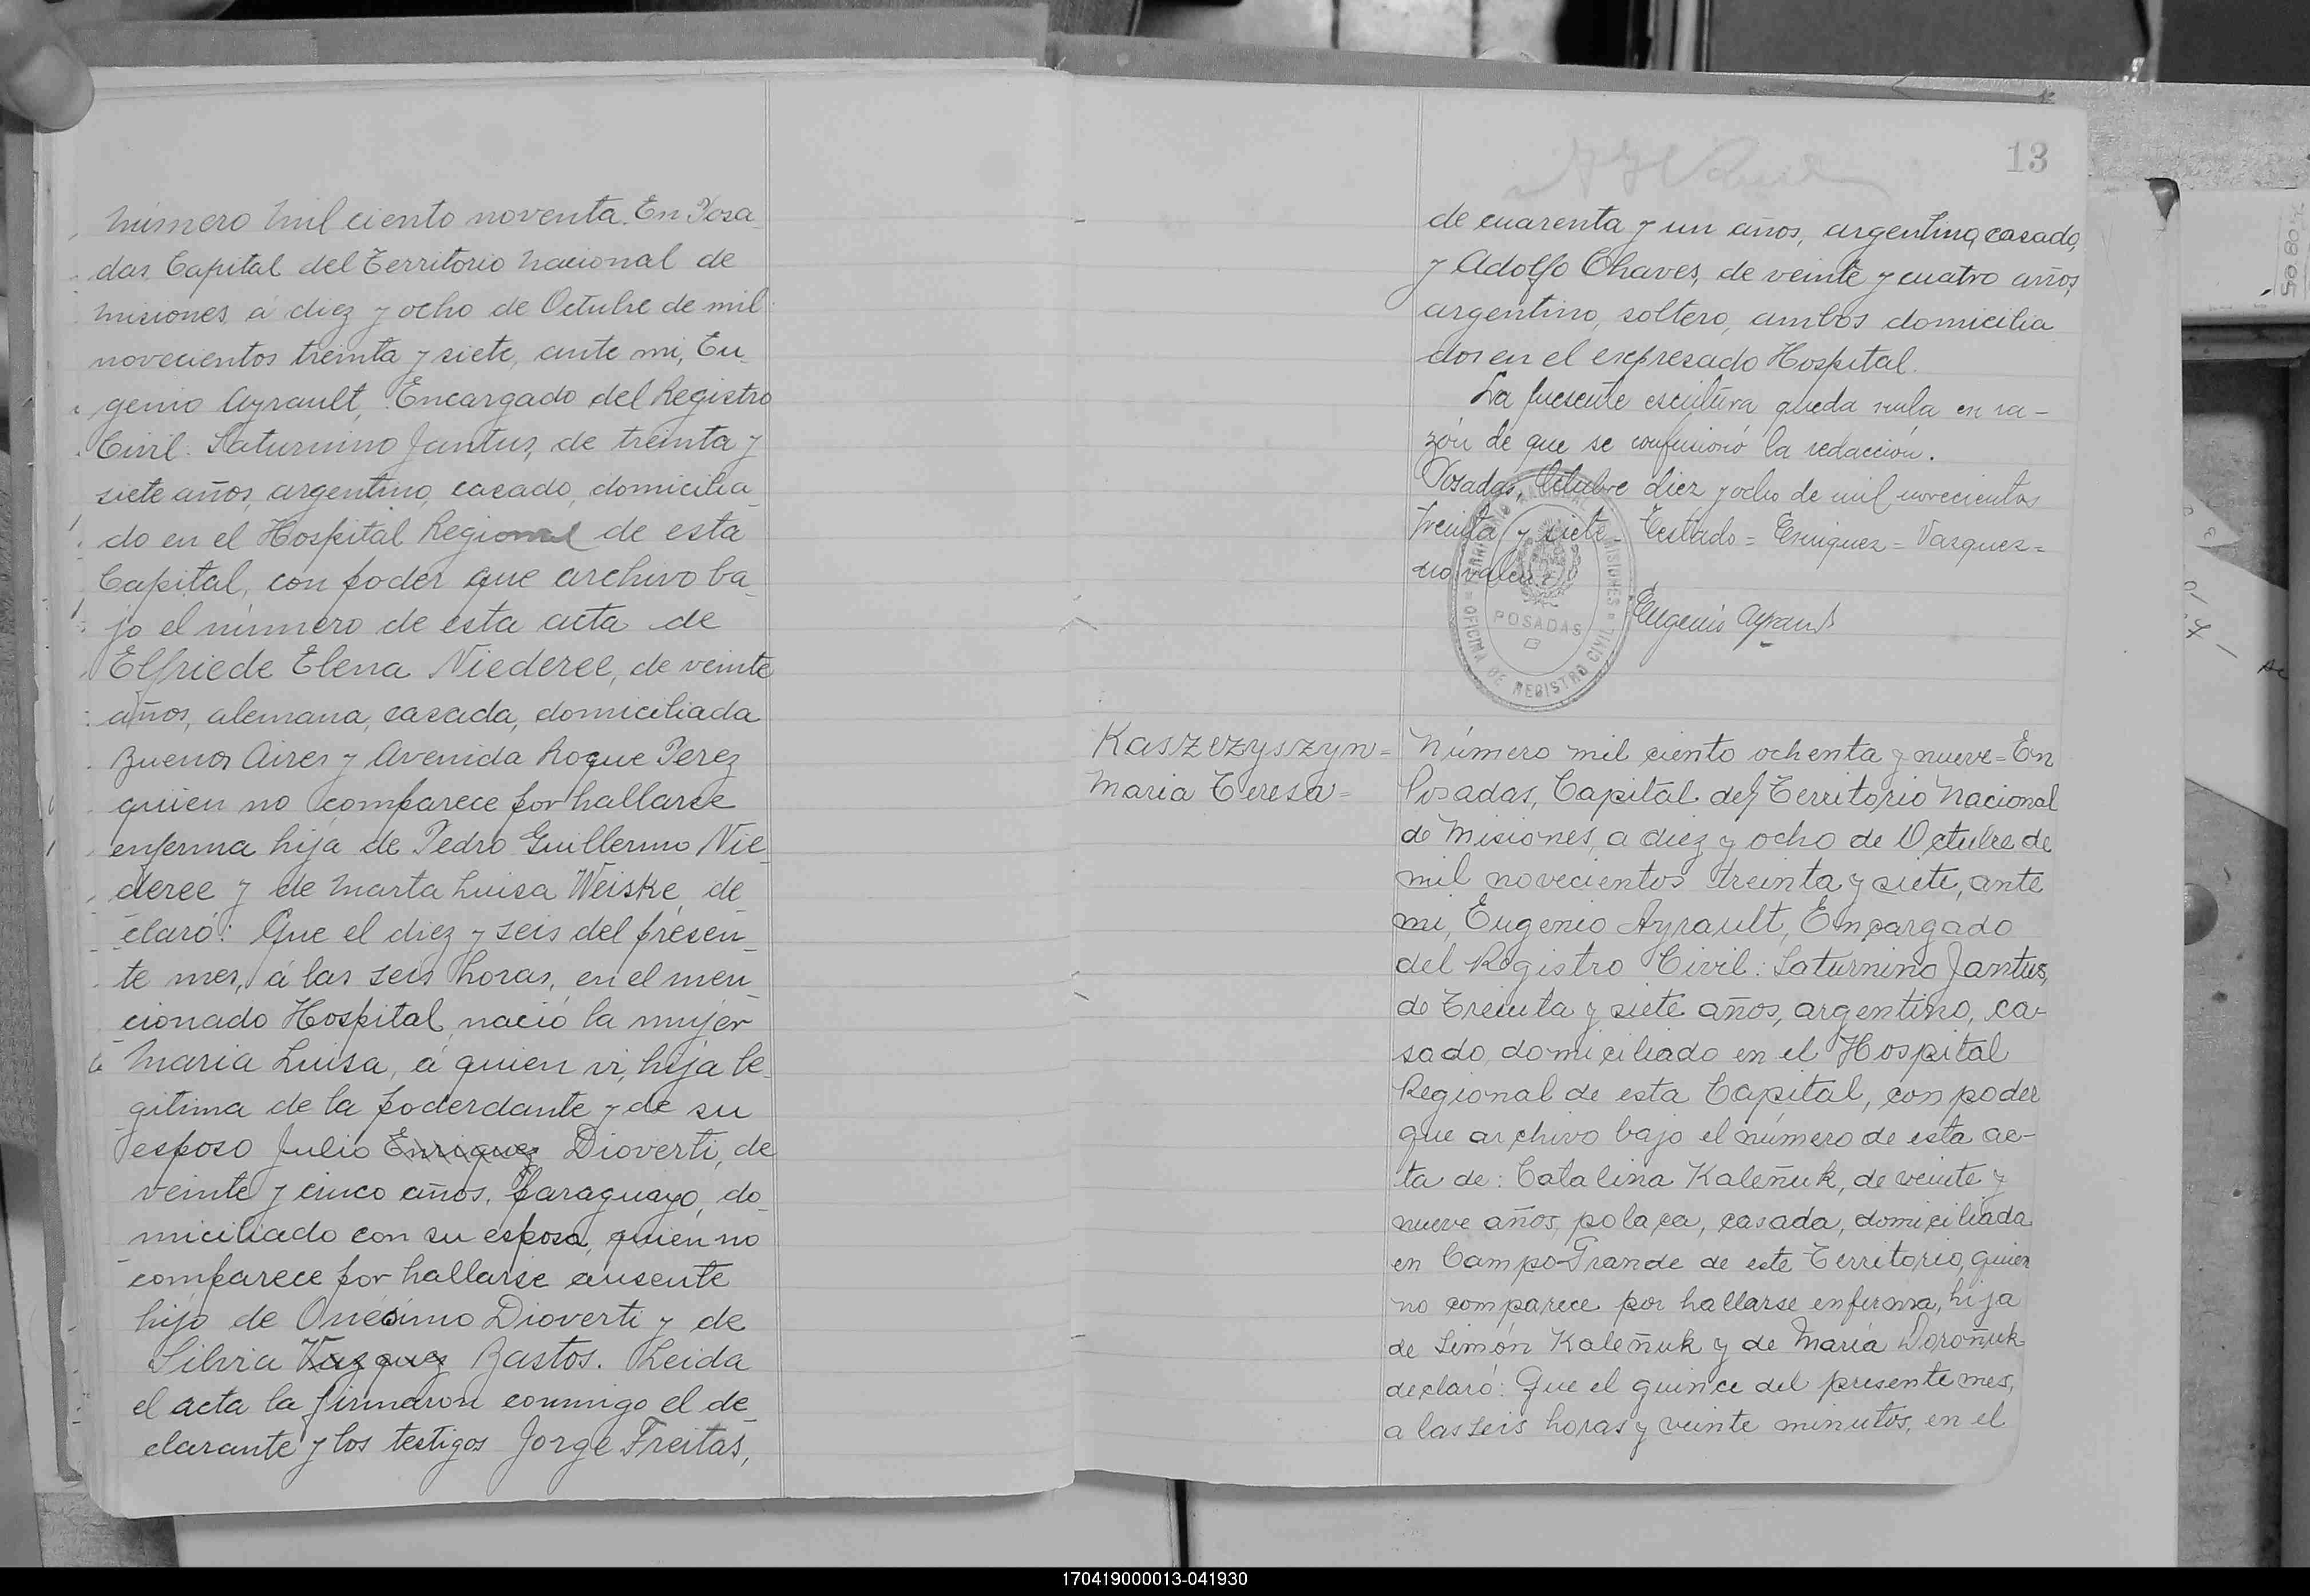 Número mil ciento noventa. En Posa
das, Capital del Territorio Nacional de
Misiones, á diez y ocho de Octubre de mil
novecientos treinta y siete, ante mi, Eu
genio Ayrault, Encargado del Registro
Civil: Saturnino Jantus, de treinta y
siete años, argentino, casado, domicilia
do en el Hospital Regional de esta
Capital, con poder que archivo ba
jo el número de esta acta de
Elfriede Elena Niederee, de veinte
años, alemana, casada, domiciliada
Buenos Aires y Avenida Roque Perez
quien no comparece por hallarse
enferma hija de Pedro Guillermo Nie
deree y de Marta Luisa Weiske, de
claró: Que el diez y seis del presen
te mes, á las seis horas, en el men
cionado Hospital, nació la mujer
Maria Luisa, á quien vi, hija le
gitima de la poderdante y de su
esposo Julio Enriquez Dioverti, de
veinte y cinco años, Paraguayo, do
miciliado con su esposa, quien no
comparece por hallarse ausente
hijo de Onésimo Dioverti y de
Silvia Vazquez Bastos. Leida
el acta la firmaron conmigo el de
clarante y los testigos Jorge Freitas,
13
de cuarenta y un años, argentino, casado,
y Adolfo Chaves, de veinte y cuatro años,
argentino, soltero, ambos domicilia
dos en el expresado Hospital.
La presente escritura queda nula en ra-
zón de que se confusionó la redacción.
Posadas, Octubre diez y ocho de mil novecientos
treinta y siete. Testado = Enriquez = Vasquez =
no valen.
Eugenio Ayrault
POSADAS
OFICINA DE REGISTRO CIVIL
Kaszczyszyn=
Maria Teresa=
Número mil ciento ochenta y nueve = En
Posadas, Capital del Territorio Nacional
de Misiones, a diez y ocho de Octubre de
mil novecientos treinta y siete, ante
mi, Eugenio Ayrault, Encargado
del Registro Civil: Saturnino Jantus,
de treinta y siete años, argentino, ca-
sado, domiciliado en el Hospital
Regional de esta Capital, con poder
que archivo bajo el número de esta ac-
ta de: Catalina Kaleñuk, de veinte y
nueve años, polaca, casada, domiciliada
en Campo Grande de este Territorio, quien
no comparece por hallarse enferma, hija
de Simón Kaleñuk y de María Doroñuk
declaró: Que el quince del presente mes,
a las seis horas y veinte minutos, en el
170419000013-041930